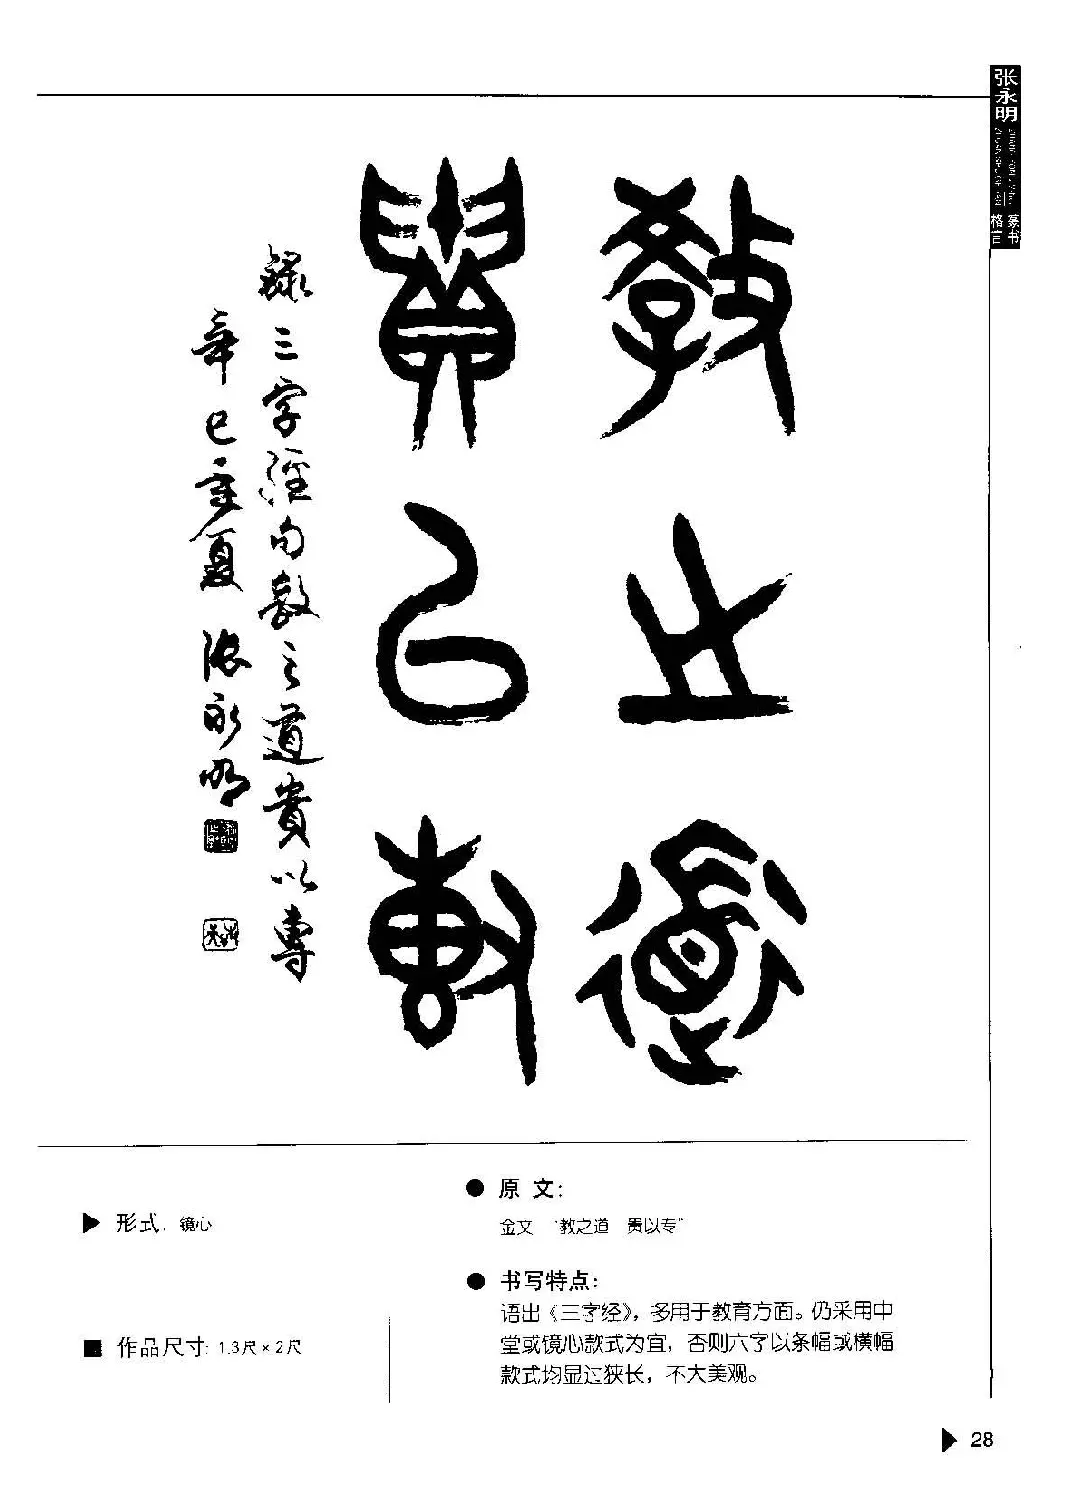 张永明
篆书
格言
教之道
貴以専
録三字經句教之道貴以專
辛巳年夏 張永明
形式: 镜心
作品尺寸: 1.3尺×2尺
原 文:
金文 “教之道 贵以专”
书写特点:
语出《三字经》，多用于教育方面。仍采用中
堂或镜心款式为宜，否则六字以条幅或横幅
款式均显过狭长，不大美观。
28